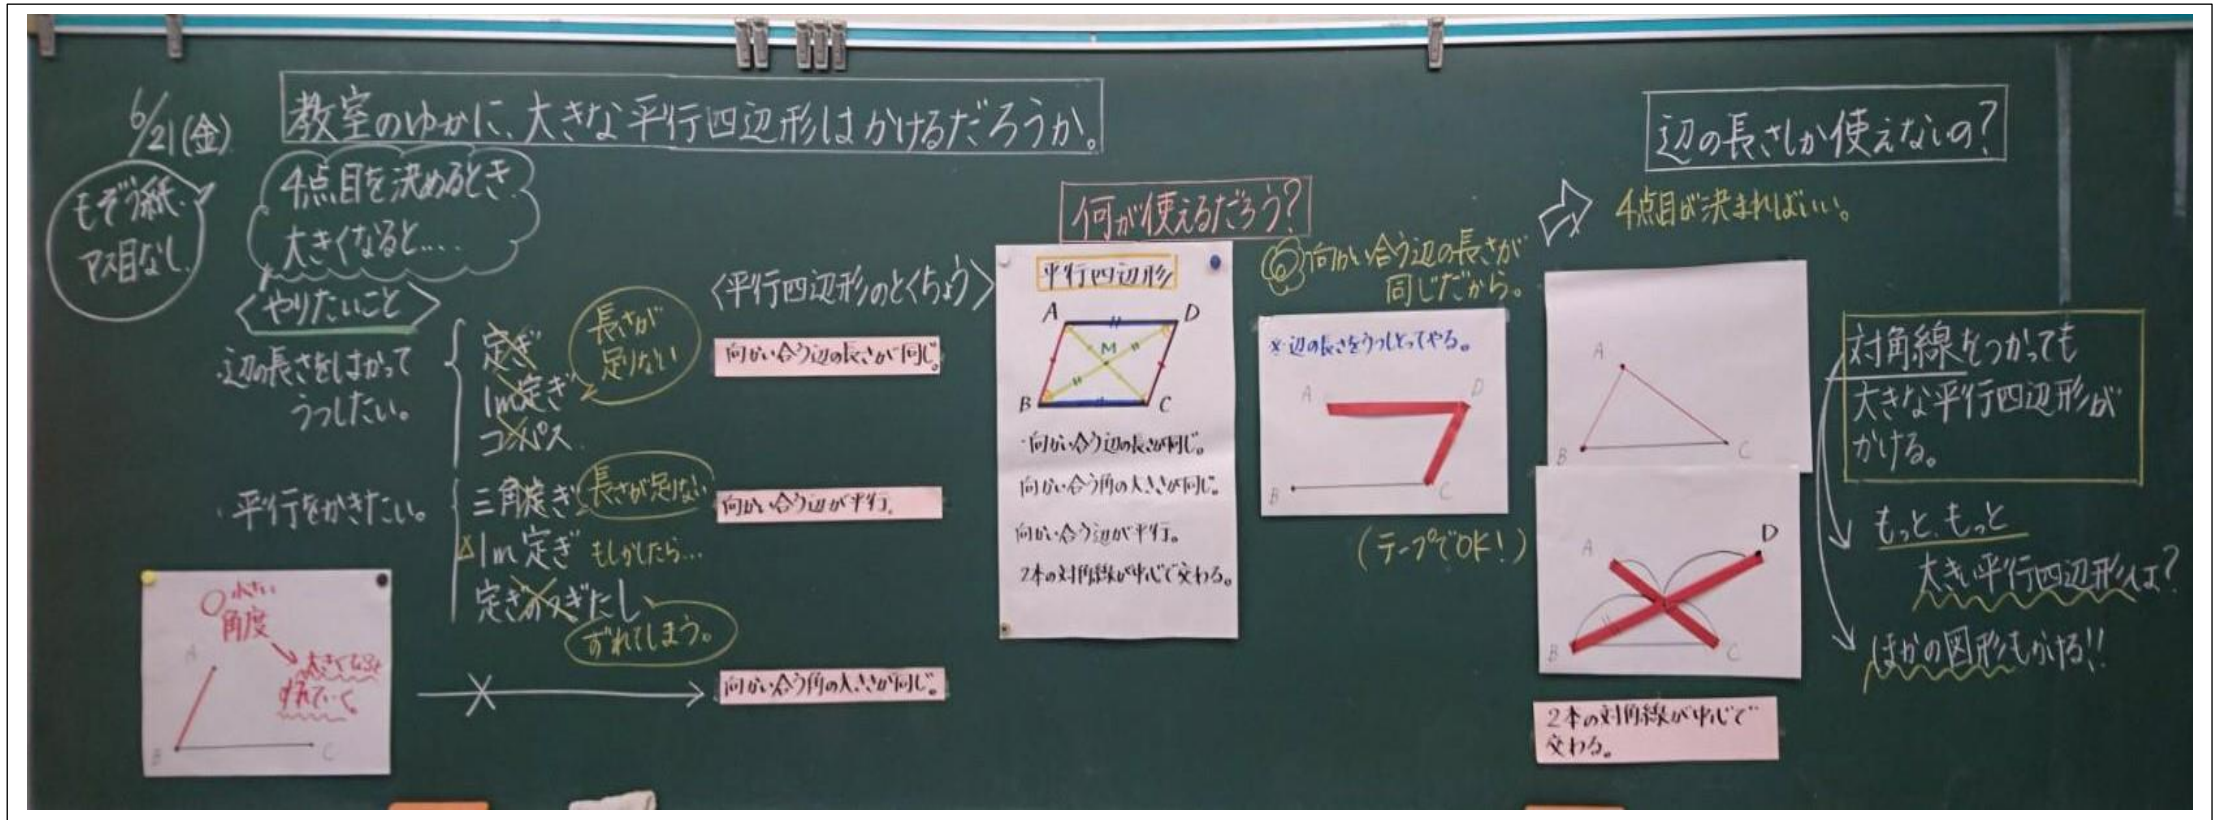 6/21(金)
教室のゆかに、大きな平行四辺形はかけるだろうか。
もぞう紙
マス目なし
4点目を決めるとき、
大きくなると....
〈やりたいこと〉
・辺の長さをはかって
うつしたい。
定ぎ
1m定ぎ
コンパス
長さが
足りない
・平行をかきたい。
三角定ぎ
長さが足りない
△1m定ぎ もしかしたら...
定ぎのつぎたし
ずれてしまう。
小さい
角度
大きくなると
ずれていく。
A
B
C
〈平行四辺形のとくちょう〉
向かい合う辺の長さが同じ。
向かい合う辺が平行。
向かい合う角の大きさが同じ。
何が使えるだろう?
平行四辺形
A
D
M
B
C
・向かい合う辺の長さが同じ。
向かい合う角の大きさが同じ。
向かい合う辺が平行。
2本の対角線が中心で交わる。
向かい合う辺の長さが
同じだから。
※辺の長さをうつしとってやる。
A
D
B
C
(テープでOK!)
辺の長さしか使えないの?
4点目が決まればいい。
A
B
C
A
D
B
C
2本の対角線が中心で
交わる。
対角線をつかっても
大きな平行四辺形が
かける。
もっと、もっと
大きい平行四辺形は?
ほかの図形もかける!!